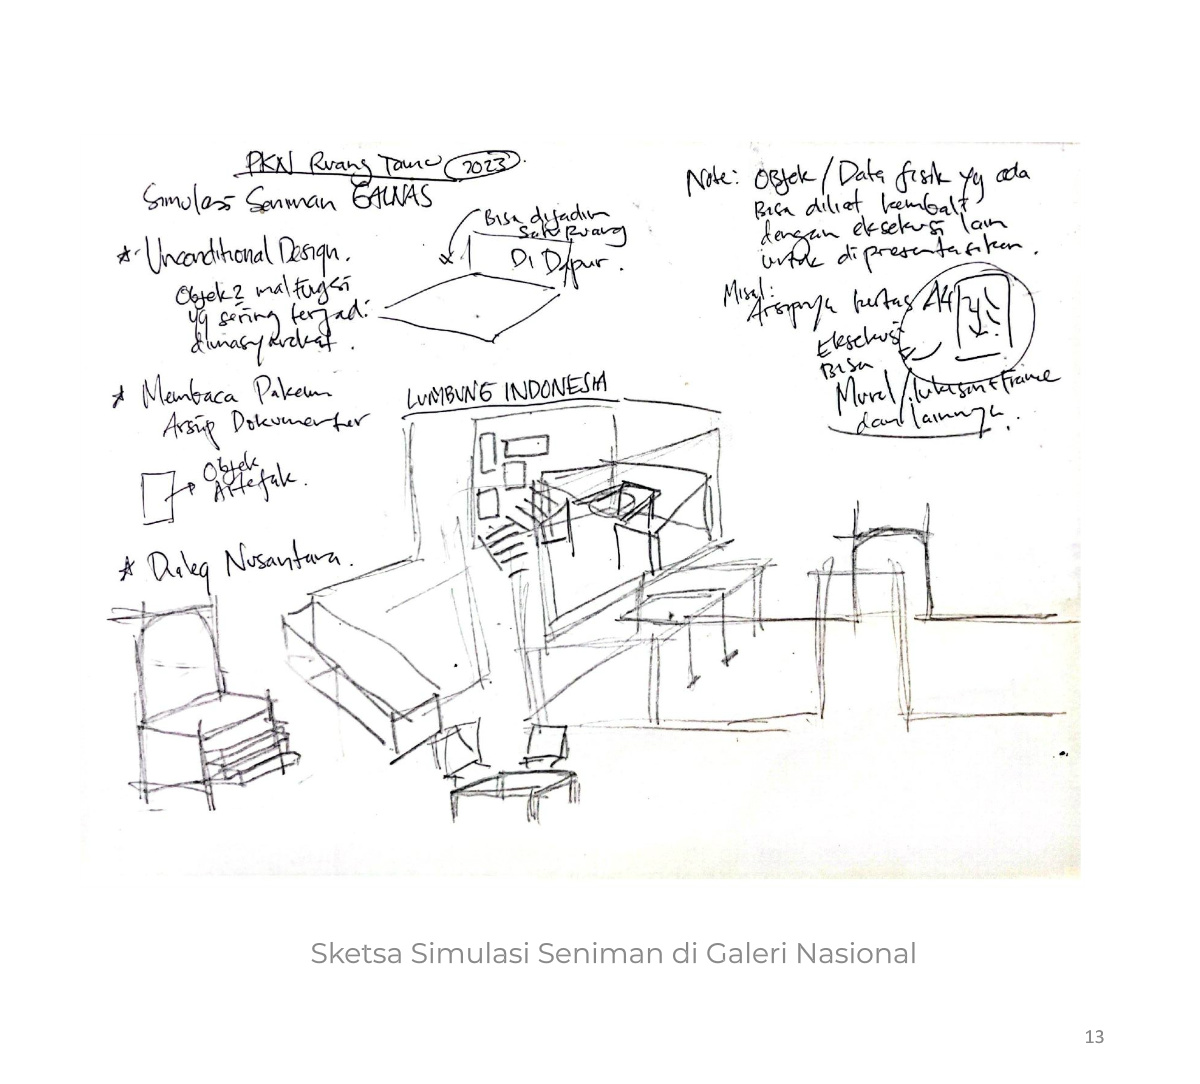 PKN Ruang Tamu 2023.
Simulasi Seniman GALNAS
* Unconditional Design.
Objek2 malfugsi
yg sering terjadi
dimasyarakat.
Bisa dijadiin
satu Ruang
Di Dapur.
* Membaca Pakem
Arsip Dokumenter
Objek
Artefak.
* Dialog Nusantara.
LUMBUNG INDONESIA
Note: Objek / Data fisik yg ada
Bisa diliat kembali
dengan eksekusi lain
untuk dipresentasikan.
Misal:
Arsipnya kertas A4
Eksekusi
Bisa
Mural / lukisan + Frame
dan lainnya.
Sketsa Simulasi Seniman di Galeri Nasional
13